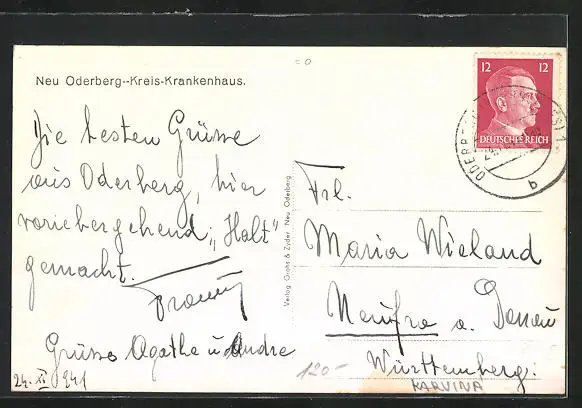 Neu Oderberg--Kreis-Krankenhaus.
Die besten Grüsse
aus Oderberg, hier
voriebergehend, "Halt"
gemacht.
Grüsse Agathe u Andre
24. XI 941
Verlag Grohs & Zyder Neu Oderberg
12 12
DEUTSCHES REICH
Frl.
Maria Wieland
Neufra a. Donau
Württemberg.
KARVINA
120-